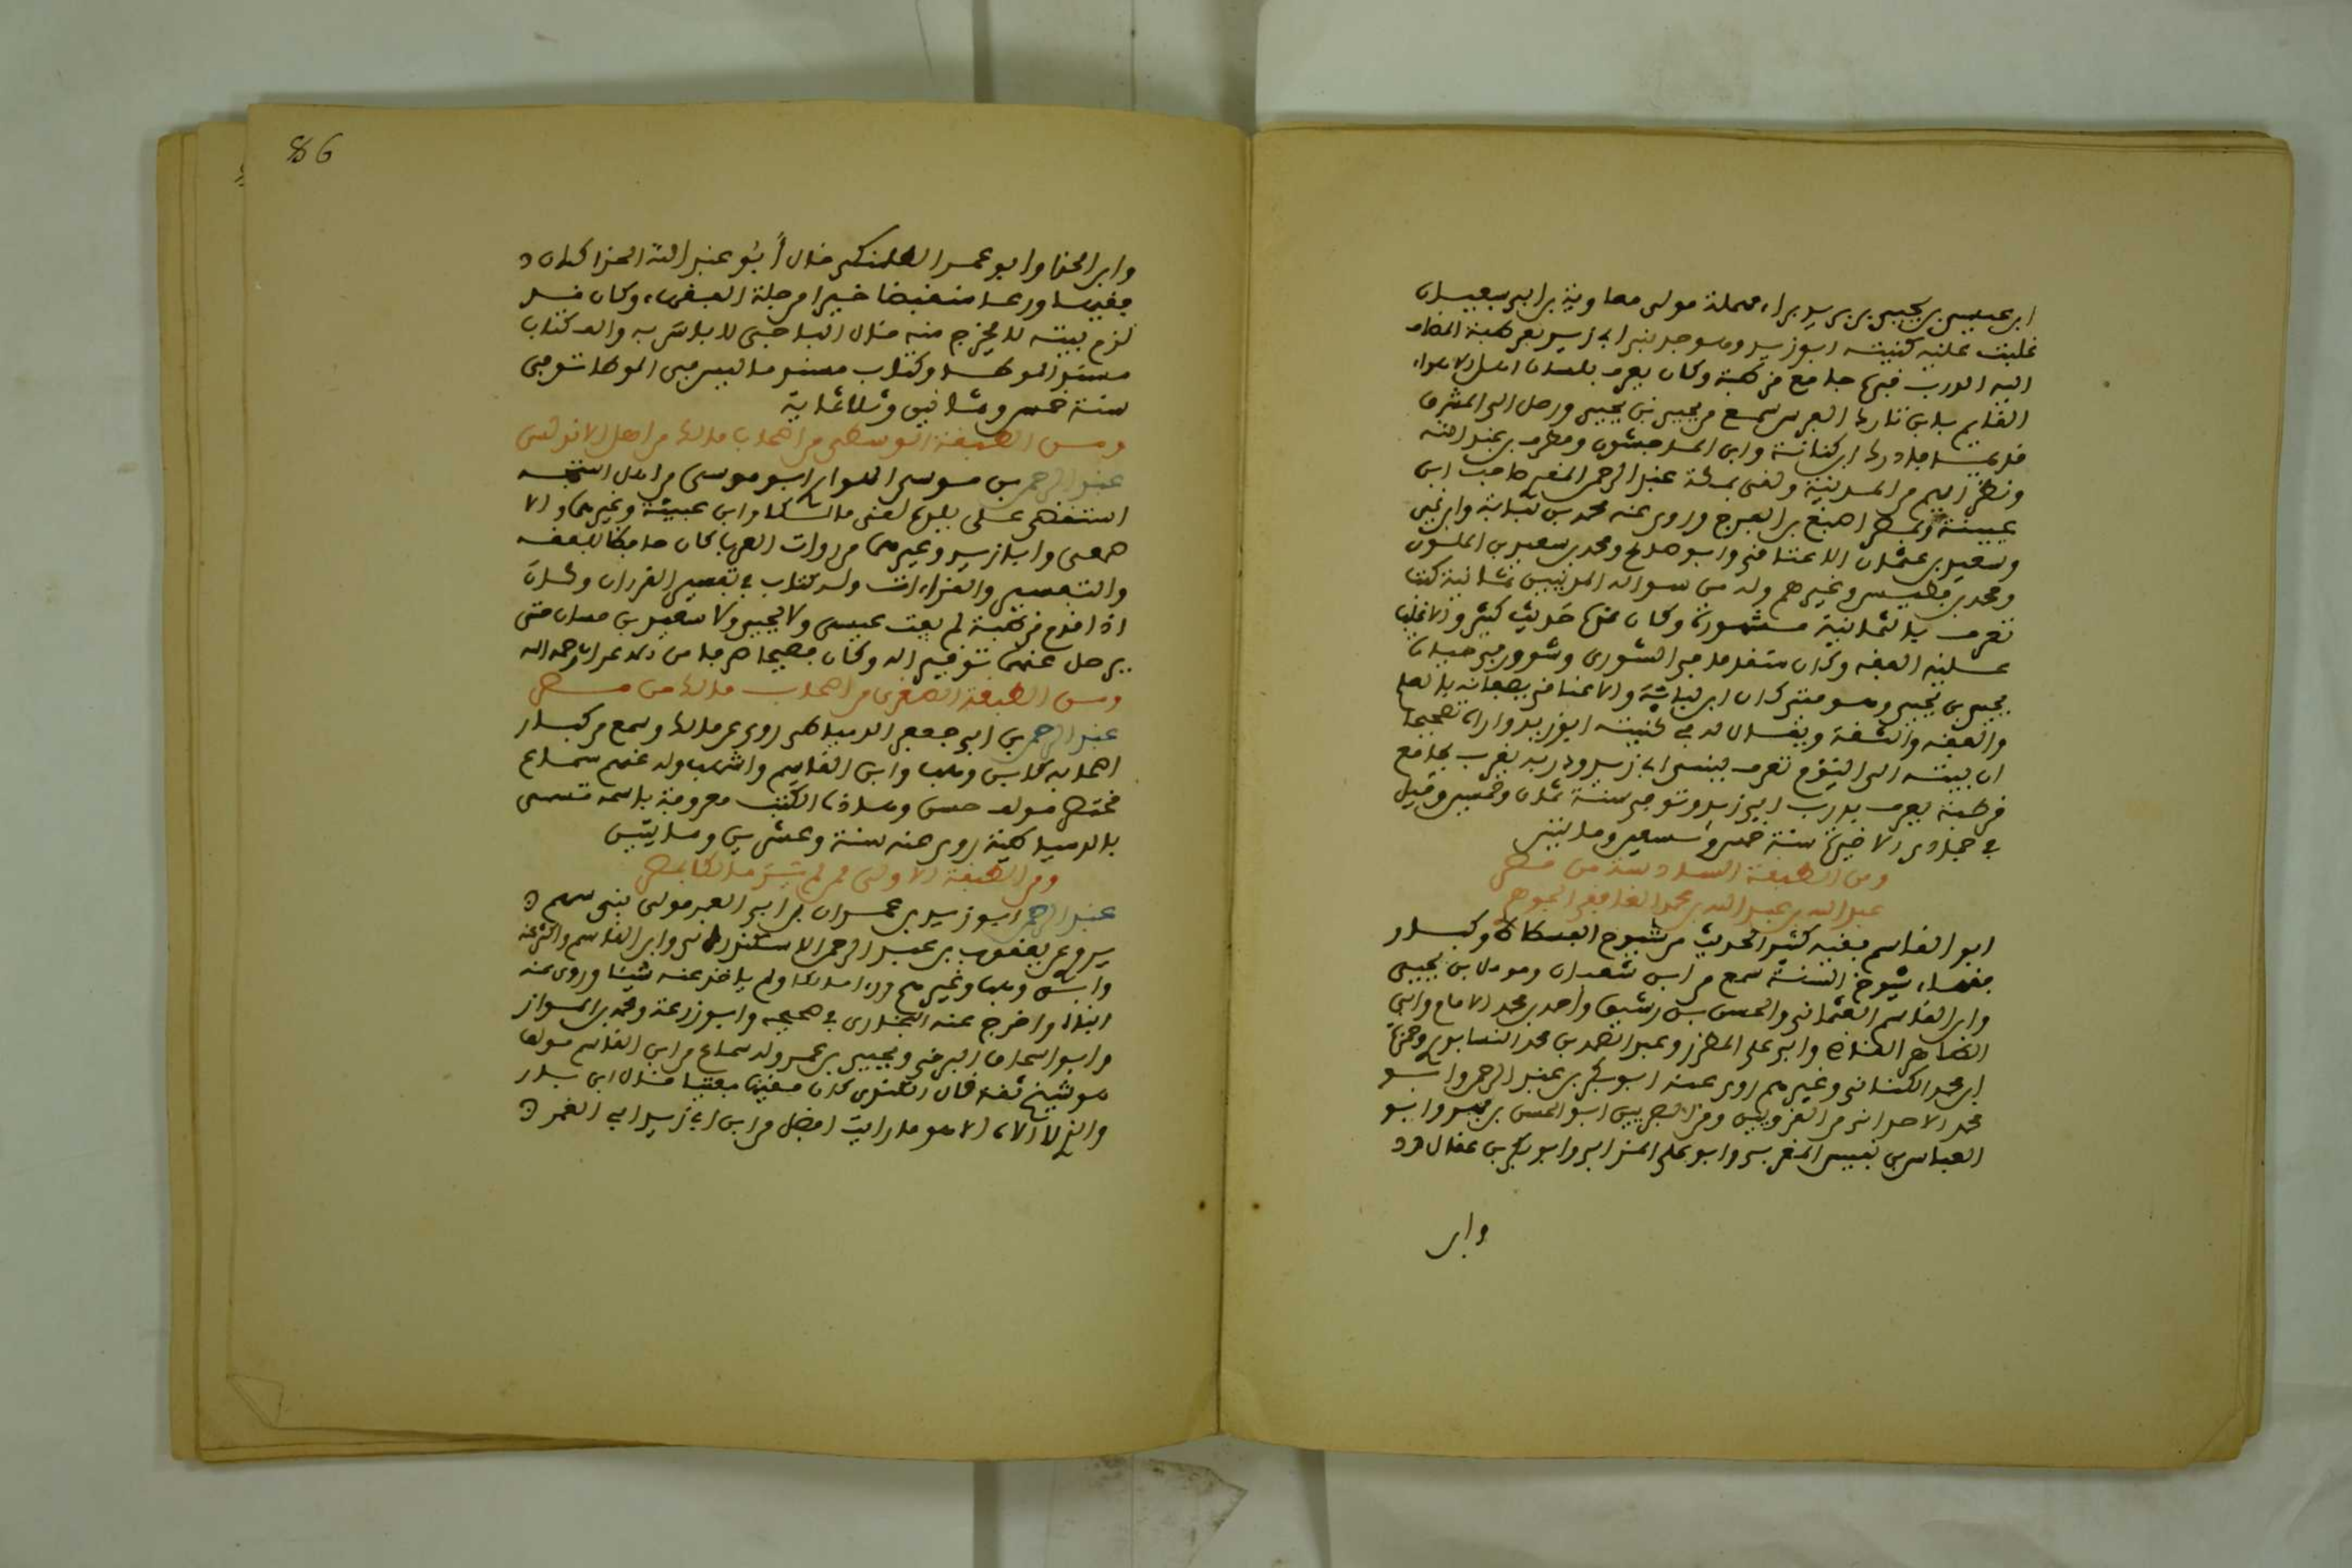 ابن عيسى بن يحيى بن بريد براء مهملة مولى معاوية بن ابي سفيان
غلبت عليه كنيته ابو زيد وهو جد بني ابي زيد بقرطبة المضاف
اليه الدرب فيها جامع قرطبة وكان يعرف بلسان اهل
القديم بابن تارك الفرس سمع من يحيى بن يحيى ورحل الى المشرق
قديما ابن كنانة وابن الماجشون ومطرف بن عبد الله
ونظراءهم من المدنية ولقي بمكة عبد الرحمن المقري صاحب ابن
عيينة وبمصر اصبغ بن الفرج وروى عنه محمد بن لبابة وابن
وسعيد بن عثمان الاعناقي وابو صالح ومحمد بن سعيد بن الملون
ومحمد بن فطيس وغيرهم وله من سواله المدنيين ثمانية كتب
تعرف بالثمانية مشهورة وكان عنده حديث كثير والاغلب
عليه الفقه وكان متقدما في الشورى وشوور في حياة
يحيى بن يحيى وهو فتى كان ابن لبابة والاعناقي يصفانه بالعلم
والفقه والثقة ويقال له في كنيته ابو زيد واراه تصحيفا
ان بيته الى اليوم تعرف ببني ابي زيد ودربه بقرب جامع
قرطبة يعرف بدرب ابي زيد وتوفي سنة ثمان وخمسين وقيل
في جمادى الاخيرة سنة خمس وماتين
ومن الطبقة السادسة من مصر
عبد الرحمن بن عبد الله بن محمد الغافقي الجوهري
ابو القاسم فقيه كثير الحديث من شيوخ الفسطاط وكبار
فقهاء شيوخ السنة سمع من ابن شعبان ومومل بن يحيى
وابي القاسم العثماني والحسن بن رشيق واحمد بن محمد الامام وابي
الطاهر القاضي وابي علي المطرز وعبد الصمد بن محمد النسابوري وحمزة
ابن محمد الكناني وغيرهم روى عنه ابو بكر بن عبد الرحمن وابو
محمد الاجدابي من القرويين ومن المصريين ابو الحسن بن فهر وابو
العباس بن نفيس المقري وابو علي وابو بكر بن عقال
وابن
86
وابن الحذا وابو عمر الطلمنكي قال ابو عبد الله الحذا كان
فقيها ورعا منقبضا خيرا من جلة الفقهاء وكان قد
لزم بيته لا يخرج منه قال الباجي لا باس به والف كتاب
مسند الموطا وكتاب مسند ما ليس في الموطا توفي
سنة خمس وثمانين وثلاثماية
ومن الطبقة الوسطى من اصحاب مالك من اهل الاندلس
عبد الرحمن بن موسى الهواري ابو موسى من اهل استجه
استقضي على بلده لقي مالكا وابن عيينة وغيرهما والا
صمعي وابا زيد وغيرهما من روات الغريب كان حافظا للفقه
والتفسير والقراءات وله كتاب في تفسير القرءان وكان
اذا قدم قرطبة لم يفت عيسى ولا يحيى ولا سعيد بن حسان حتى
يرحل عنها توقيرا له وكان فصيحا رحمه الله
ومن الطبقة الصغرى من اصحاب مالك من مصر
عبد الرحمن بن ابي جعفر الدمياطي روى عن مالك وسمع من كبار
اصحابه كابن وهب وابن القاسم واشهب وله عنهم سماع
مختصر مولف حسن وهذه الكتب معروفة باسمه تسمى
بالدمياطية روى عنه سنة وعشرين ومايتين
ومن الطبقة الاولى ممن لم ير مالكا بمصر
عبد الرحمن ابو زيد بن عمر بن ابي الغمر مولى بني سهم
يروي عن يعقوب بن عبد الرحمن الاسكندراني وابن القاسم واكثر عنه
وابن وهب وغيرهم وراى مالكا ولم ياخذ عنه شيئا وروى عنه
ابناه واخرج عنه البخاري في صحيحه وابو زرعة ومحمد بن المواز
وابو اسحاق البرقي ويحيى بن عمر وله سماع من ابن القاسم مولف
هو شيخ ثقة قال الكندي كان فقيها مفتيا قال ابن باز
والله الذي لا اله الا هو ما رايت افضل من ابي زيد بن ابي الغمر